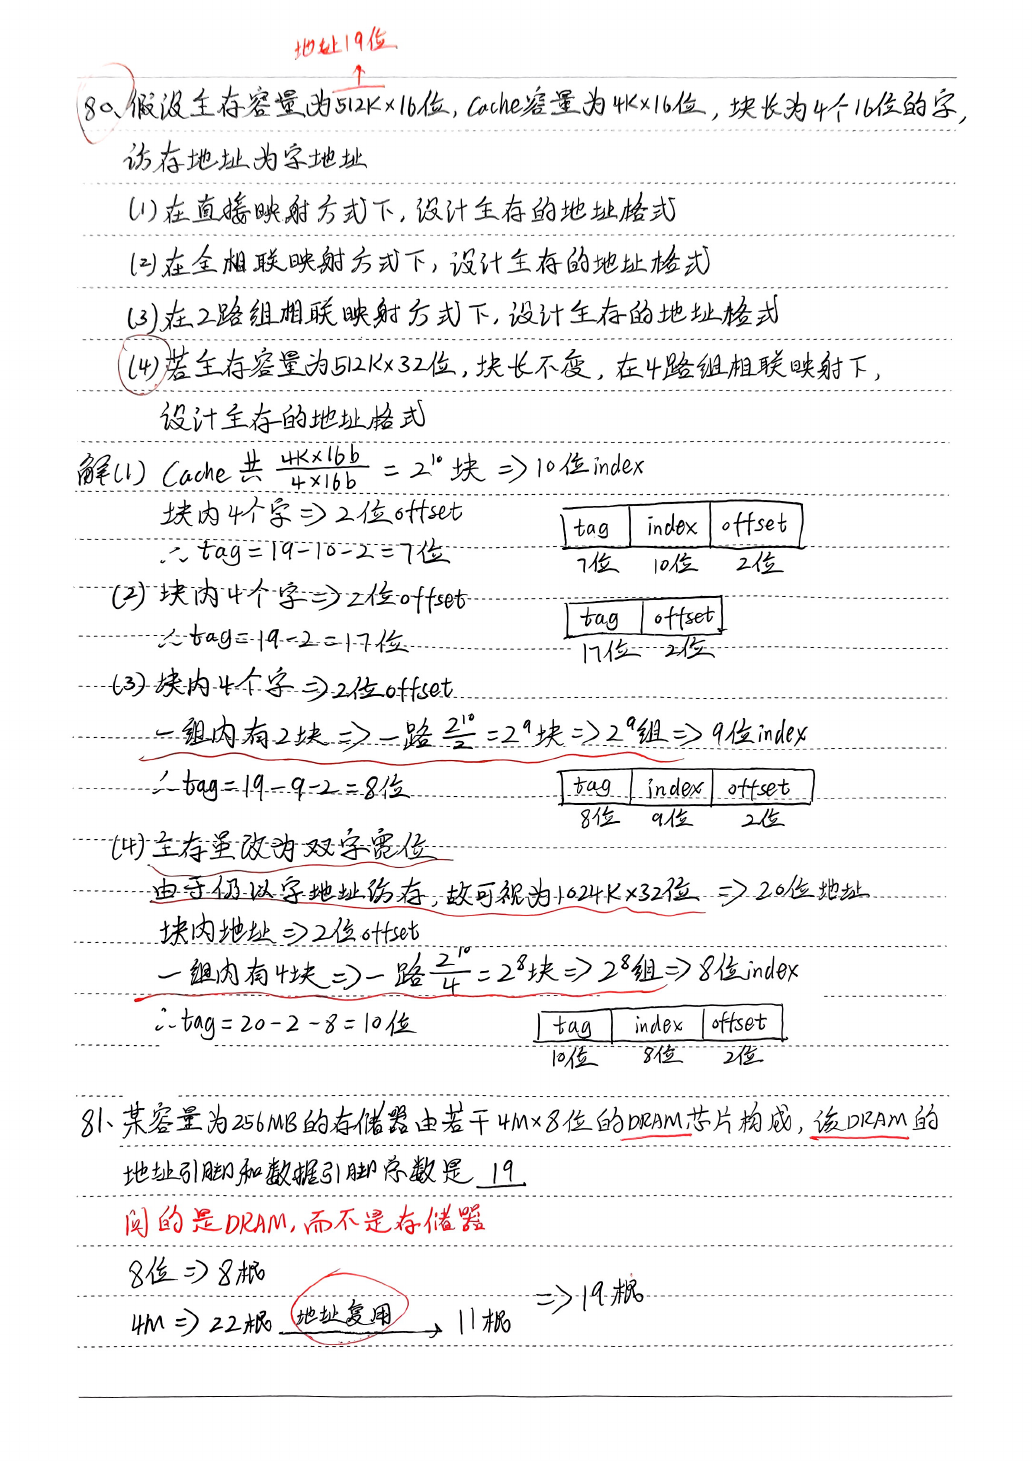 地址19位
↑
80、假设主存容量为512K×16位，Cache容量为4K×16位，块长为4个16位的字，
访存地址为字地址
(1)在直接映射方式下，设计主存的地址格式
(2)在全相联映射方式下，设计主存的地址格式
(3)在2路组相联映射方式下，设计主存的地址格式
(4)若主存容量为512K×32位，块长不变，在4路组相联映射下，
设计主存的地址格式
解(1) Cache共 4K×16b/4×16b = 2¹⁰块 => 10位index
块内4个字 => 2位offset
tag index offset
∴ tag=19-10-2=7位
7位 10位 2位
(2) 块内4个字 => 2位offset
tag offset
∴ tag=19-2=17位
17位 2位
(3) 块内4个字 => 2位offset
一组内有2块 => 一路 2¹⁰/2 = 2⁹块 => 2⁹组 => 9位index
∴ tag=19-9-2=8位
tag index offset
8位 9位 2位
(4) 主存虽改为双字宽位
由于仍以字地址访存，故可视为1024K×32位 => 20位地址
块内地址 => 2位offset
一组内有4块 => 一路 2¹⁰/4 = 2⁸块 => 2⁸组 => 8位index
∴ tag=20-2-8=10位
tag index offset
10位 8位 2位
81、某容量为256MB的存储器由若干4M×8位的DRAM芯片构成，该DRAM的
地址引脚和数据引脚总数是 19
问的是DRAM，而不是存储器
8位 => 8根
=> 19根
4M => 22根 地址复用 → 11根